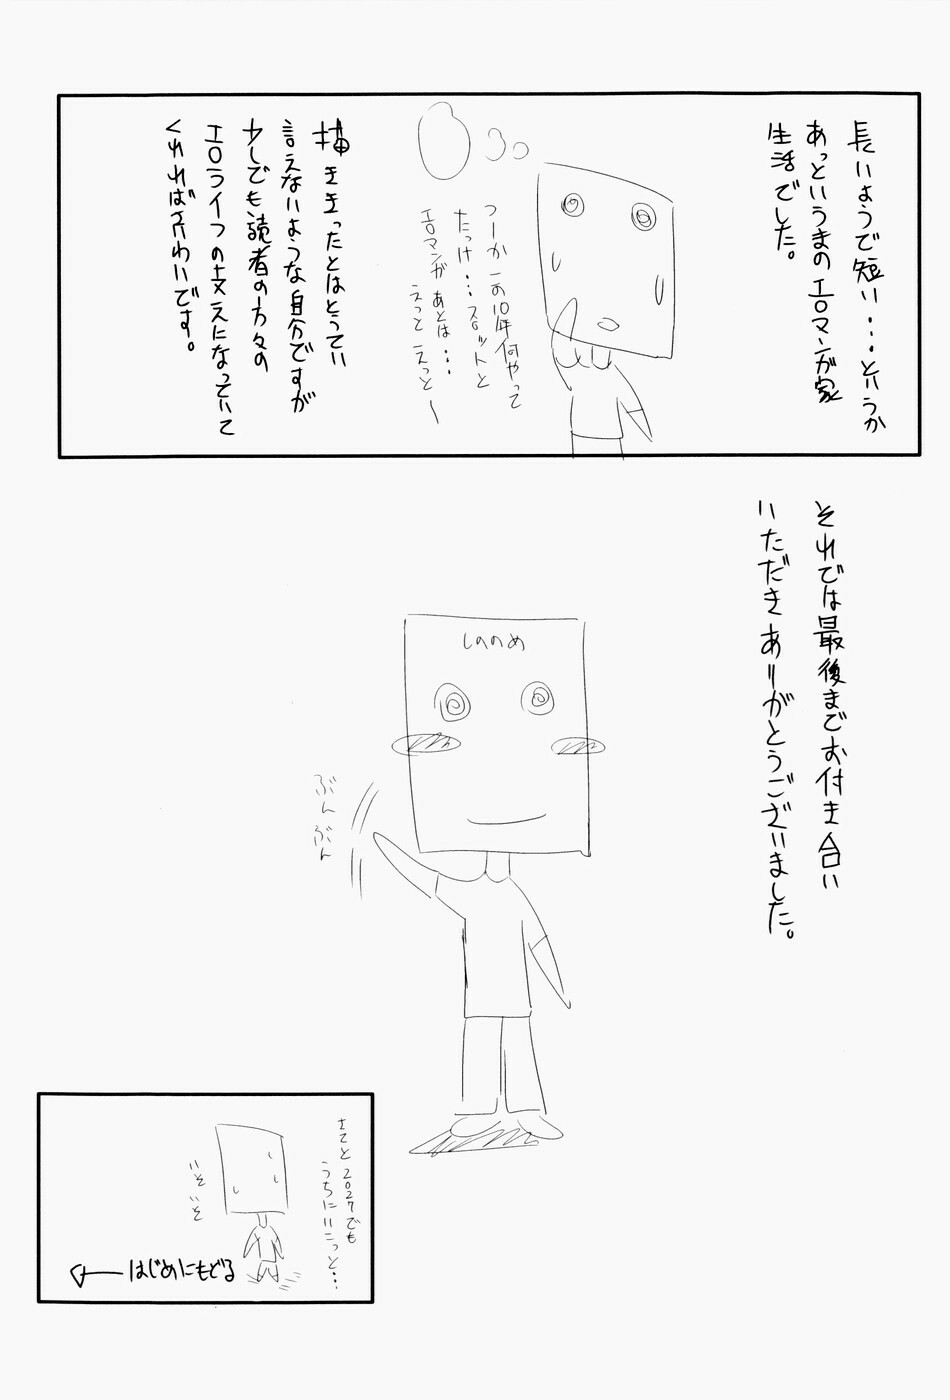 長いようで短い・・・というか
あっというまのエロマンガ家
生活でした。
つーかこの10年何やって
たっけ・・・スロットと
エロマンガあとは・・・
えっと えっと～
描ききったとはとうてい
言えないような自分ですが
少しでも読者の方々の
エロライフの支えになっていて
くれればさいわいです。
それでは最後までお付き合い
いただきありがとうございました。
しののめ
ぶんぶん
さてと2027でも
うちにいこっと・・・
いそいそ
はじめにもどる